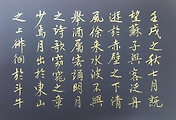 壬戌之秋七月既
望蘇子與客泛舟
遊於赤壁之下清
風徐来水波不興
舉酒属客誦明月
之詩歌窈窕之章
少焉月出於東山
之上徘徊於斗牛